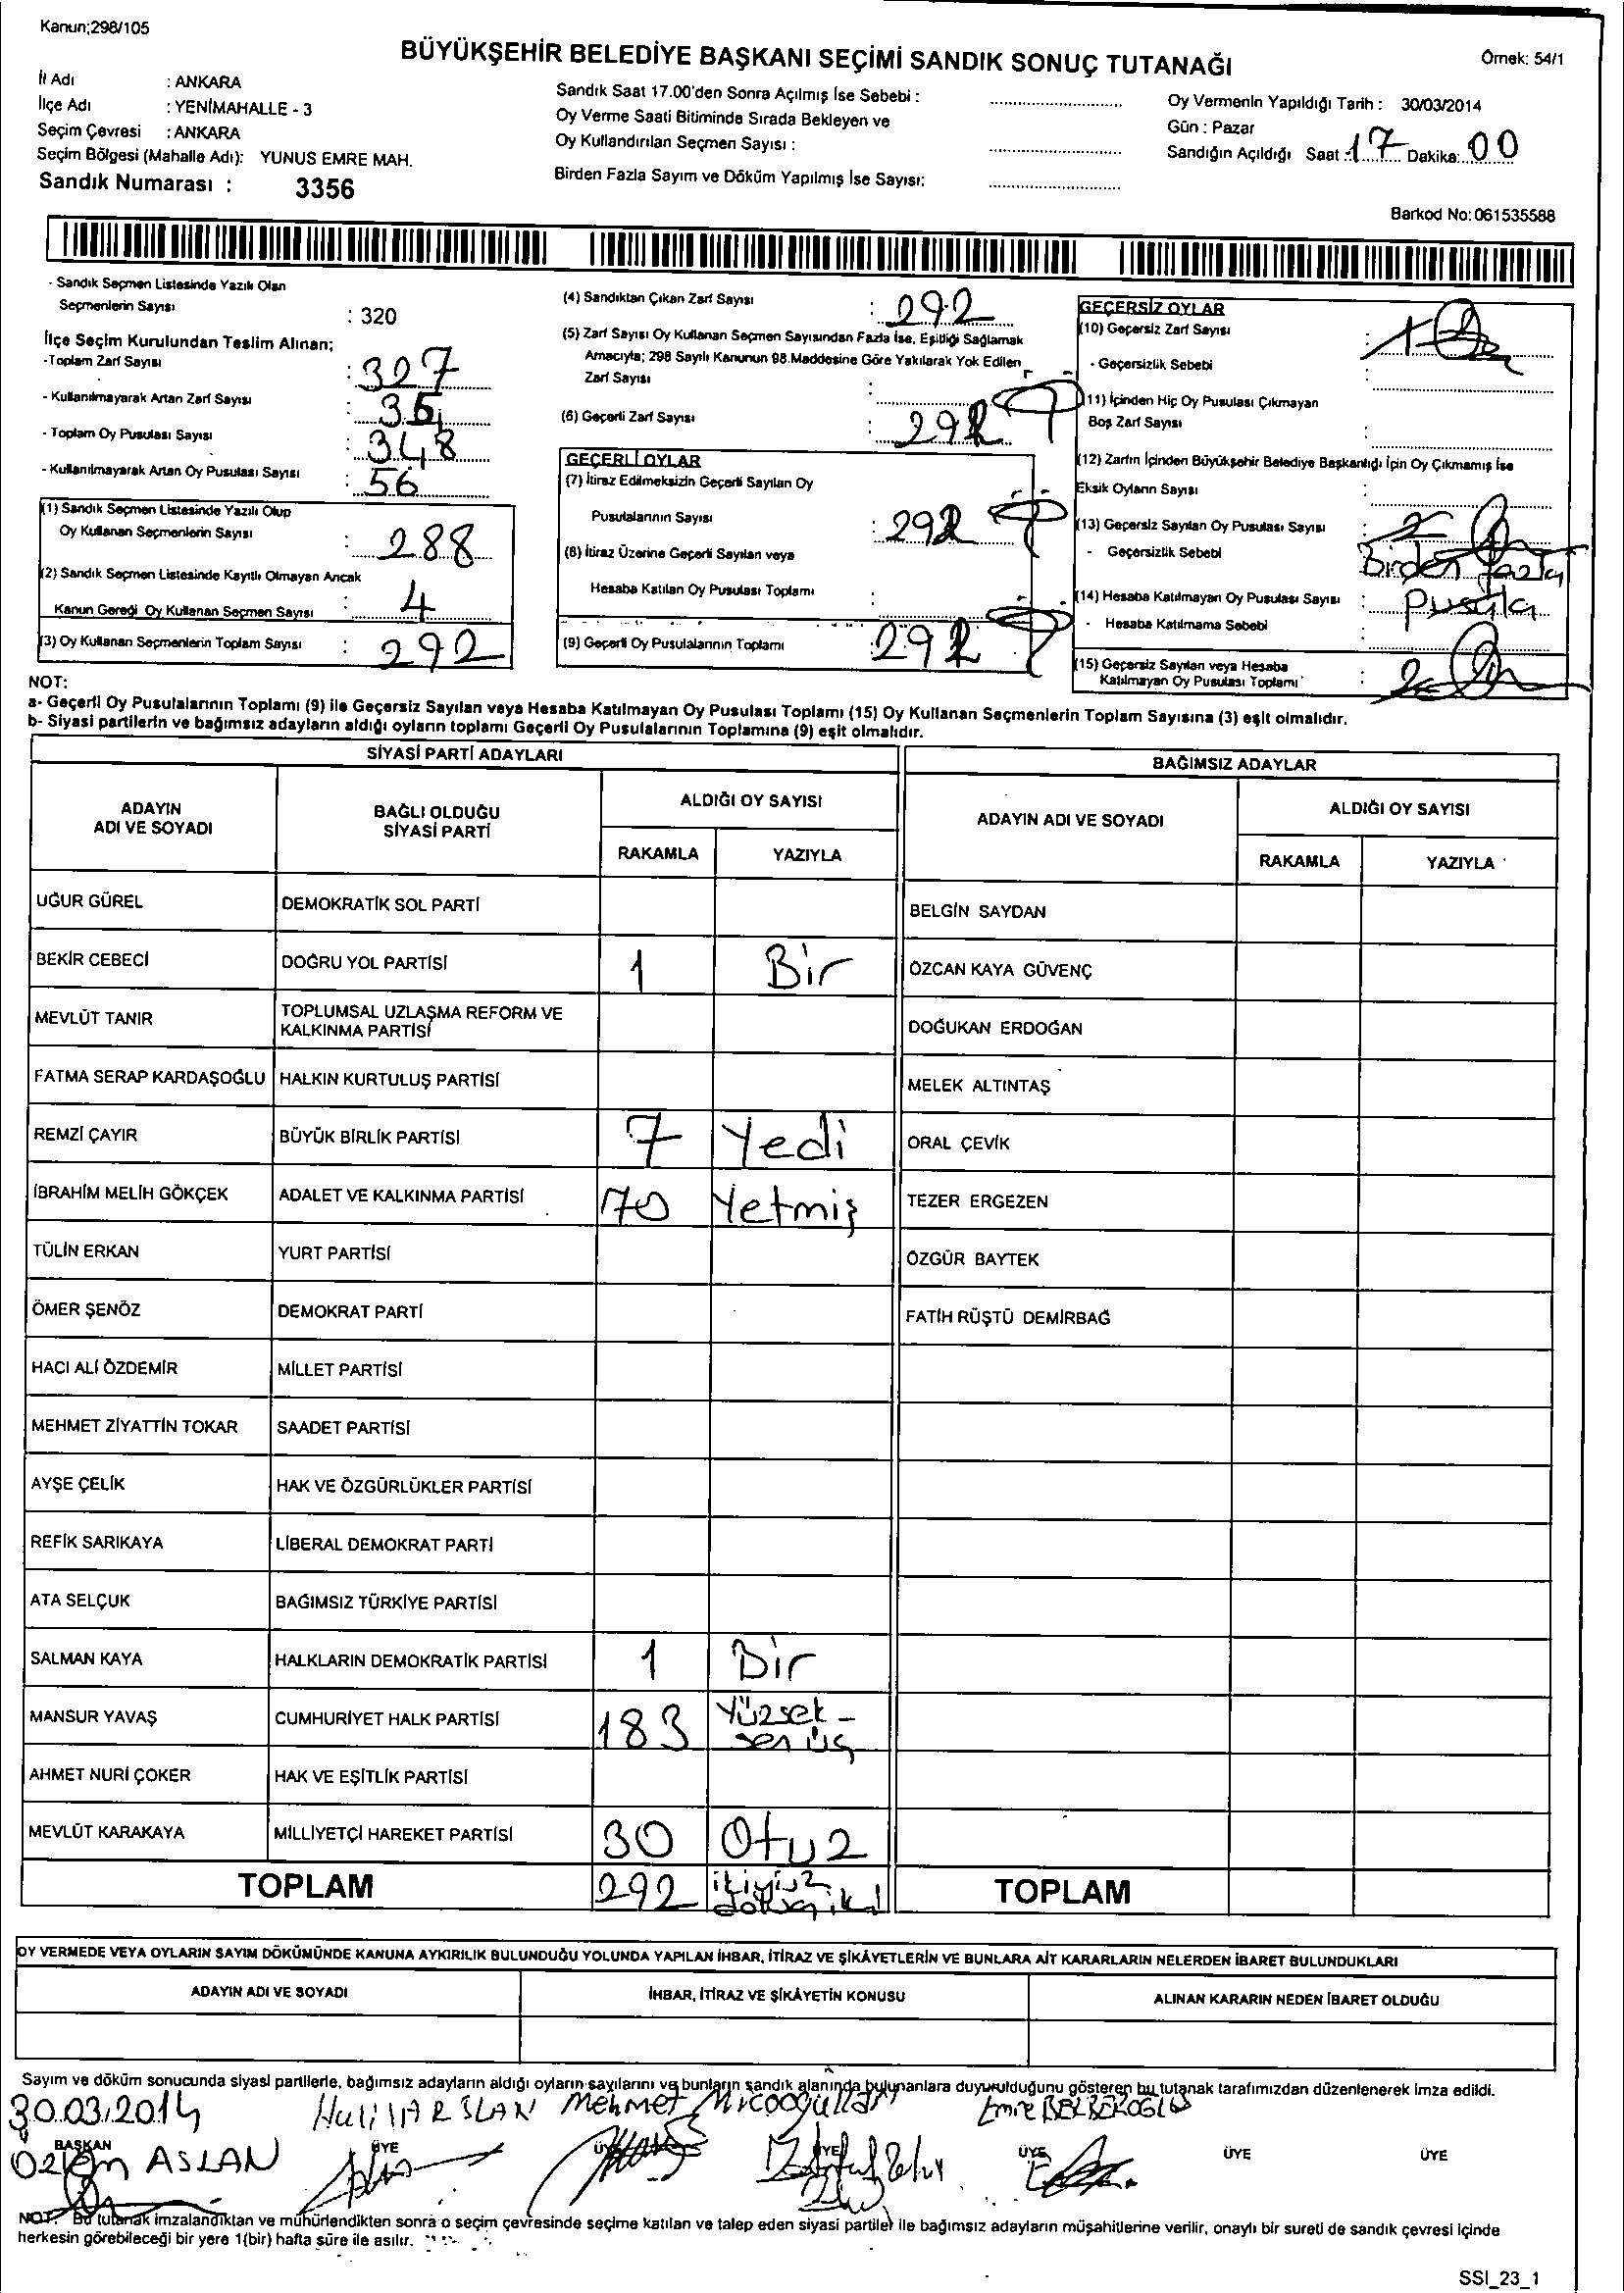 Kanun;298/105
BÜYÜKŞEHİR BELEDİYE BAŞKANI SEÇİMİ SANDIK SONUÇ TUTANAĞI
Örnek: 54/1
İl Adı : ANKARA
İlçe Adı : YENİMAHALLE - 3
Seçim Çevresi : ANKARA
Seçim Bölgesi (Mahalle Adı): YUNUS EMRE MAH.
Sandık Numarası : 3356
Sandık Saat 17.00'den Sonra Açılmış İse Sebebi :
Oy Verme Saati Bitiminde Sırada Bekleyen ve
Oy Kullandırılan Seçmen Sayısı :
Birden Fazla Sayım ve Döküm Yapılmış İse Sayısı:
Oy Vermenin Yapıldığı Tarih : 30/03/2014
Gün : Pazar
Sandığın Açıldığı Saat : 17 Dakika: 00
Barkod No: 061535588
- Sandık Seçmen Listesinde Yazılı Olan
Seçmenlerin Sayısı : 320
İlçe Seçim Kurulundan Teslim Alınan;
-Toplam Zarf Sayısı : 327
- Kullanılmayarak Artan Zarf Sayısı : 35
- Toplam Oy Pusulası Sayısı : 348
- Kullanılmayarak Artan Oy Pusulası Sayısı : 56
(1) Sandık Seçmen Listesinde Yazılı Olup
Oy Kullanan Seçmenlerin Sayısı : 288
(2) Sandık Seçmen Listesinde Kayıtlı Olmayan Ancak
Kanun Gereği Oy Kullanan Seçmen Sayısı : 4
(3) Oy Kullanan Seçmenlerin Toplam Sayısı : 292
(4) Sandıktan Çıkan Zarf Sayısı : 292
(5) Zarf Sayısı Oy Kullanan Seçmen Sayısından Fazla İse, Eşitliği Sağlamak
Amacıyla; 298 Sayılı Kanunun 98.Maddesine Göre Yakılarak Yok Edilen
Zarf Sayısı :
(6) Geçerli Zarf Sayısı : 292
GEÇERLİ OYLAR
(7) İtiraz Edilmeksizin Geçerli Sayılan Oy
Pusulalarının Sayısı : 292
(8) İtiraz Üzerine Geçerli Sayılan veya
Hesaba Katılan Oy Pusulası Toplamı :
(9) Geçerli Oy Pusulalarının Toplamı : 292
GEÇERSİZ OYLAR
(10) Geçersiz Zarf Sayısı : 1
- Geçersizlik Sebebi :
(11) İçinden Hiç Oy Pusulası Çıkmayan
Boş Zarf Sayısı
(12) Zarfın İçinden Büyükşehir Belediye Başkanlığı İçin Oy Çıkmamış İse
Eksik Oyların Sayısı :
(13) Geçersiz Sayılan Oy Pusulası Sayısı : 2
- Geçersizlik Sebebi : Birden fazla
(14) Hesaba Katılmayan Oy Pusulası Sayısı : pusula
- Hesaba Katılmama Sebebi :
(15) Geçersiz Sayılan veya Hesaba
Katılmayan Oy Pusulası Toplamı : 2
NOT:
a- Geçerli Oy Pusulalarının Toplamı (9) ile Geçersiz Sayılan veya Hesaba Katılmayan Oy Pusulası Toplamı (15) Oy Kullanan Seçmenlerin Toplam Sayısına (3) eşit olmalıdır.
b- Siyasi partilerin ve bağımsız adayların aldığı oyların toplamı Geçerli Oy Pusulalarının Toplamına (9) eşit olmalıdır.
SİYASİ PARTİ ADAYLARI
BAĞIMSIZ ADAYLAR
ADAYIN ADI VE SOYADI
BAĞLI OLDUĞU SİYASİ PARTİ
ALDIĞI OY SAYISI
RAKAMLA YAZIYLA
ADAYIN ADI VE SOYADI
ALDIĞI OY SAYISI
RAKAMLA YAZIYLA
UĞUR GÜREL DEMOKRATİK SOL PARTİ BELGİN SAYDAN
BEKİR CEBECİ DOĞRU YOL PARTİSİ 1 Bir ÖZCAN KAYA GÜVENÇ
MEVLÜT TANIR TOPLUMSAL UZLAŞMA REFORM VE KALKINMA PARTİSİ DOĞUKAN ERDOĞAN
FATMA SERAP KARDAŞOĞLU HALKIN KURTULUŞ PARTİSİ MELEK ALTINTAŞ
REMZİ ÇAYIR BÜYÜK BİRLİK PARTİSİ 7 Yedi ORAL ÇEVİK
İBRAHİM MELİH GÖKÇEK ADALET VE KALKINMA PARTİSİ 70 Yetmiş TEZER ERGEZEN
TÜLİN ERKAN YURT PARTİSİ ÖZGÜR BAYTEK
ÖMER ŞENÖZ DEMOKRAT PARTİ FATİH RÜŞTÜ DEMİRBAĞ
HACI ALİ ÖZDEMİR MİLLET PARTİSİ
MEHMET ZİYATTİN TOKAR SAADET PARTİSİ
AYŞE ÇELİK HAK VE ÖZGÜRLÜKLER PARTİSİ
REFİK SARIKAYA LİBERAL DEMOKRAT PARTİ
ATA SELÇUK BAĞIMSIZ TÜRKİYE PARTİSİ
SALMAN KAYA HALKLARIN DEMOKRATİK PARTİSİ 1 Bir
MANSUR YAVAŞ CUMHURİYET HALK PARTİSİ 183 Yüzsek-senüç
AHMET NURİ ÇOKER HAK VE EŞİTLİK PARTİSİ
MEVLÜT KARAKAYA MİLLİYETÇİ HAREKET PARTİSİ 30 Otuz
TOPLAM 292 ikiyüz doksaniki TOPLAM
OY VERMEDE VEYA OYLARIN SAYIM DÖKÜMÜNDE KANUNA AYKIRILIK BULUNDUĞU YOLUNDA YAPILAN İHBAR, İTİRAZ VE ŞİKÂYETLERİN VE BUNLARA AİT KARARLARIN NELERDEN İBARET BULUNDUKLARI
ADAYIN ADI VE SOYADI İHBAR, İTİRAZ VE ŞİKÂYETİN KONUSU ALINAN KARARIN NEDEN İBARET OLDUĞU
Sayım ve döküm sonucunda siyasi partilerle, bağımsız adayların aldığı oyların sayılarını ve bunların sandık alanında bulunanlara duyurulduğunu gösteren bu tutanak tarafımızdan düzenlenerek imza edildi.
30.03.2014 Halil ARSLAN Mehmet Emre
BAŞKAN ÜYE ÜYE ÜYE ÜYE ÜYE ÜYE
Özlem ASLAN
NOT: Bu tutanak imzalandıktan ve mühürlendikten sonra o seçim çevresinde seçime katılan ve talep eden siyasi partiler ile bağımsız adayların müşahitlerine verilir, onaylı bir sureti de sandık çevresi içinde
herkesin görebileceği bir yere 1(bir) hafta süre ile asılır.
SSI_23_1